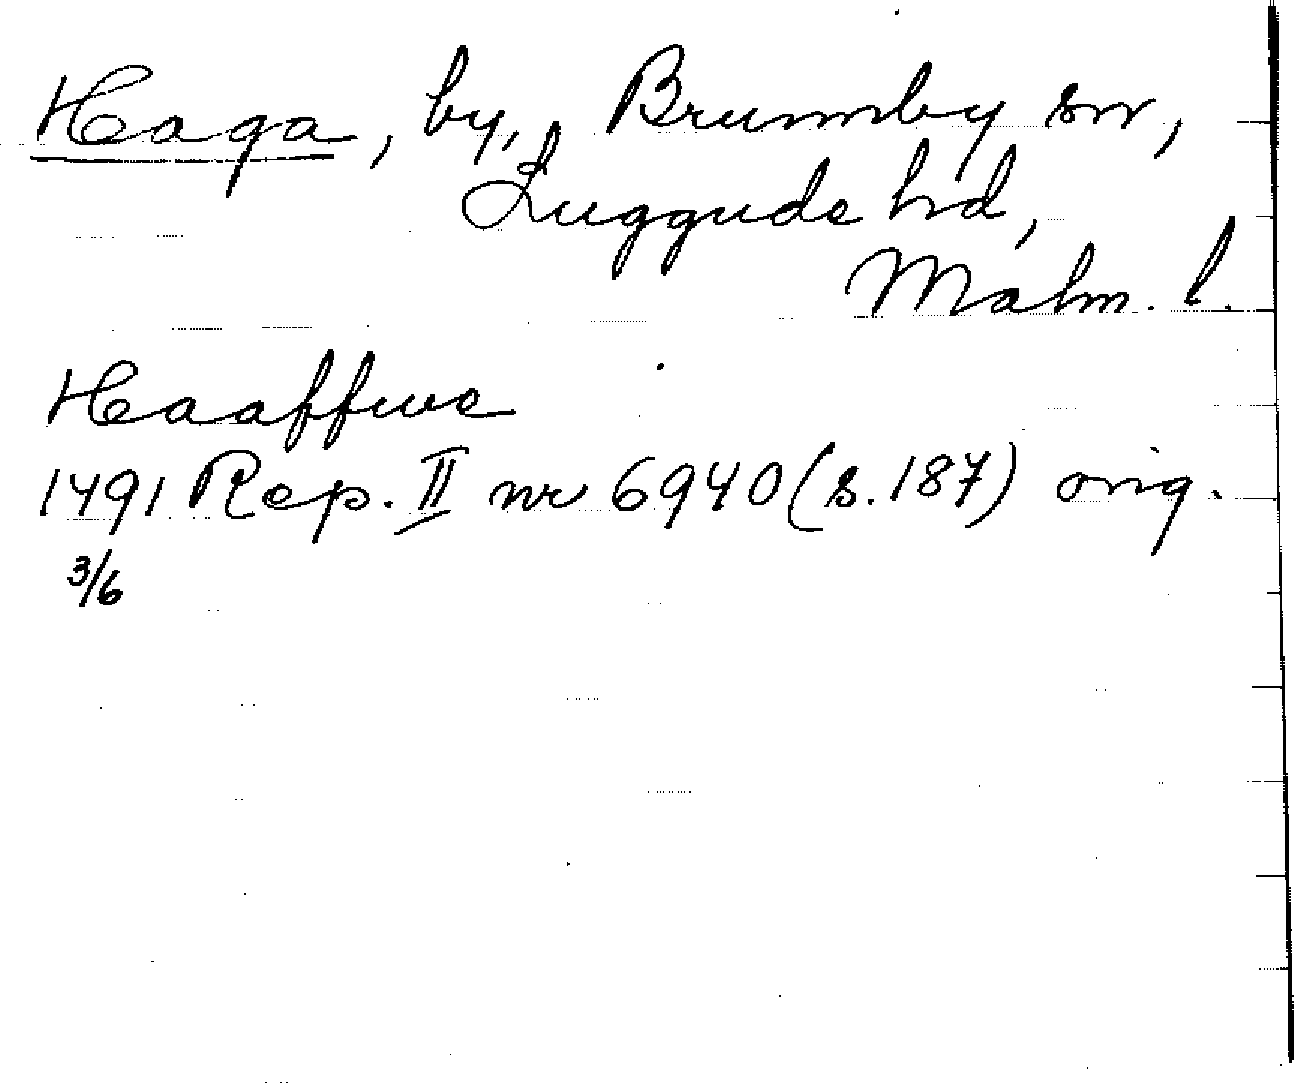 Haga, by, Brunnby sn,
Luggude hd,
Malm. l.
Haaffwe
1491 Rep. II nr 6940 (s. 187) orig.
3/6